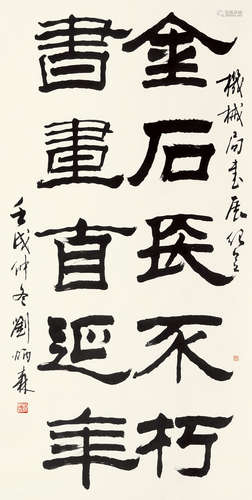 機械局書展
金石長不朽
書畫直延年
壬戌仲冬劉炳森